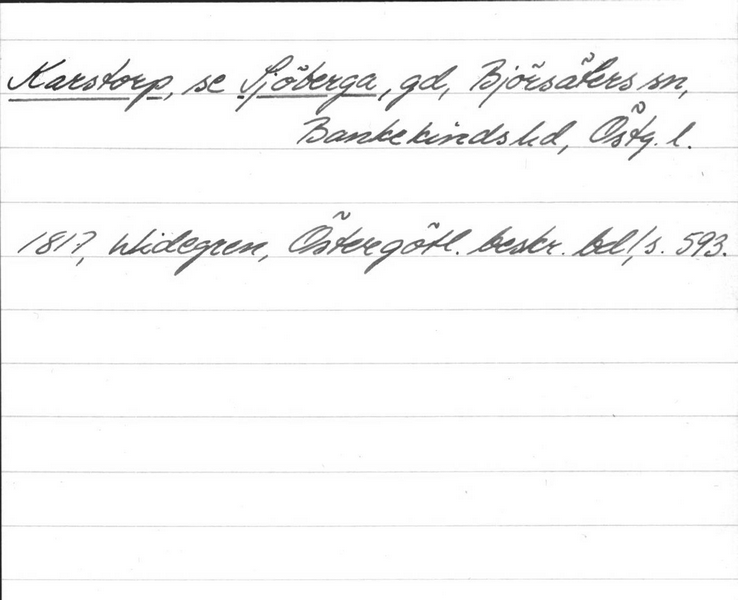 Karstorp, se Sjöberga, gd, Björsäters sn,
Bankekinds hd, Östg. l.
1817, Widegren, Östergötl. beskr. bd 1, s. 593.